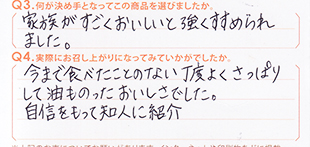 Q3.何が決め手となってこの商品を選びましたか。
家族がすごくおいしいと強くすすめられ
ました。
Q4.実際にお召し上がりになってみていかがでしたか。
今まで食べたことのない丁度よくさっぱり
して油ものったおいしさでした。
自信をもって知人に紹介